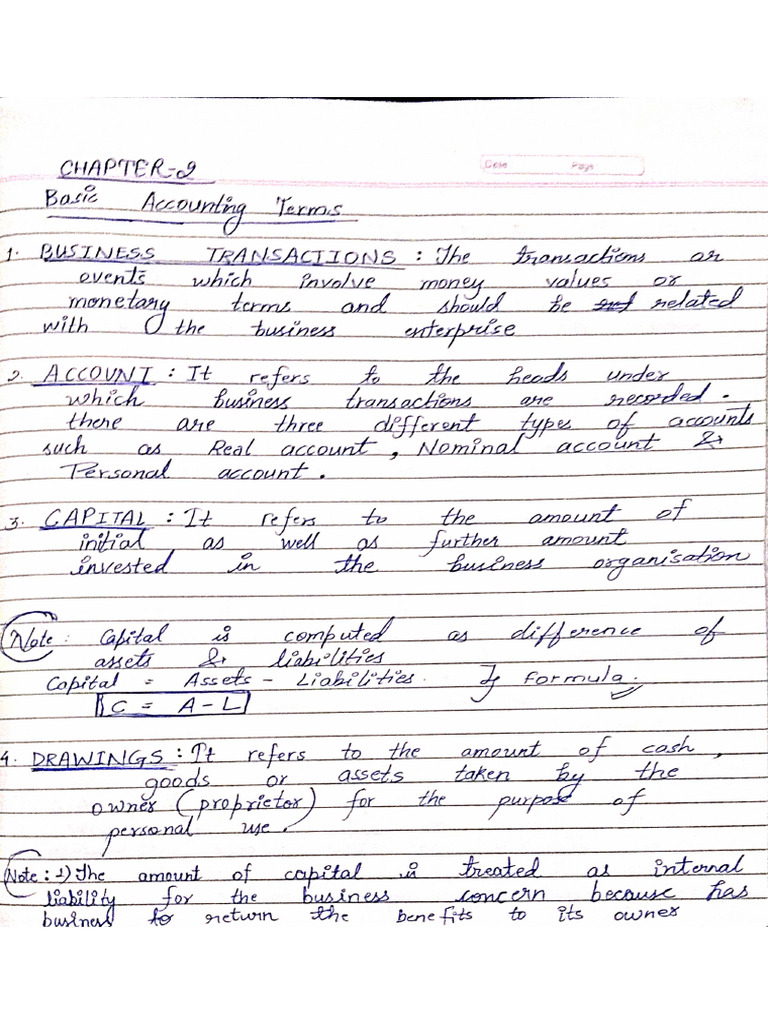 CHAPTER-2
Date Page
Basic Accounting Terms
1. BUSINESS TRANSACTIONS : The transactions or
events which involve money values or
monetary terms and should be related
with the business enterprise
2. ACCOUNT : It refers to the heads under
which business transactions are recorded.
there are three different types of accounts
such as Real account, Nominal account &
Personal account.
3. CAPITAL : It refers to the amount of
initial as well as further amount
invested in the business organisation
Note : Capital is computed as difference of
assets & liabilities
Capital = Assets - Liabilities. } formula.
C = A - L
4. DRAWINGS : It refers to the amount of cash,
goods or assets taken by the
owner (proprietor) for the purpose of
personal use.
Note : 1) The amount of capital is treated as internal
liability for the business concern because has
business to return the benefits to its owner